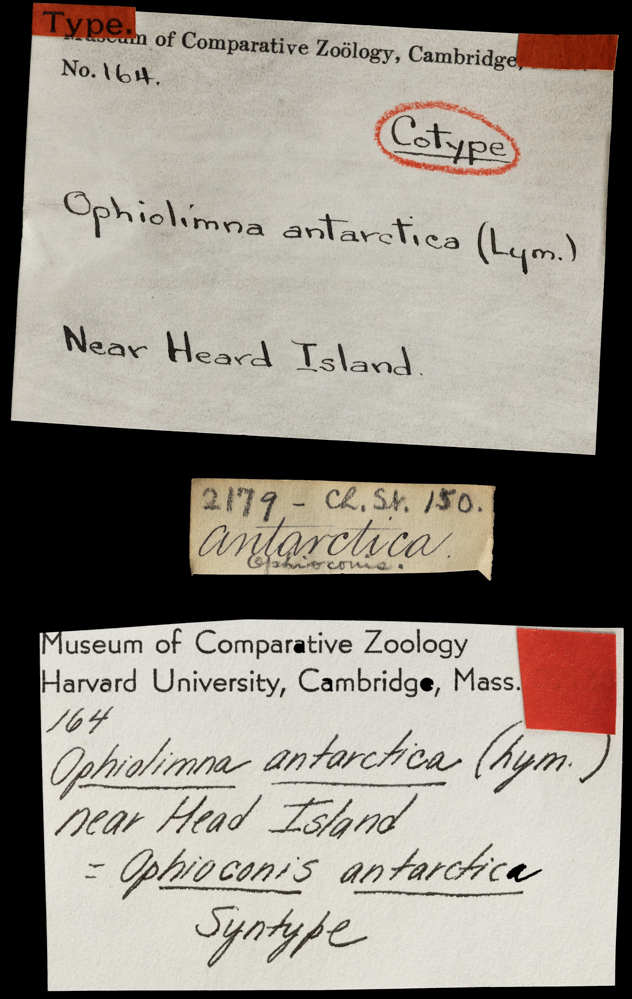 Type.
Museum of Comparative Zoölogy, Cambridge,
No. 164.
Cotype
Ophiolimna antarctica (Lym.)
Near Heard Island.
2179 - Ch. St. 150.
antarctica.
Ophioconis.
Museum of Comparative Zoology
Harvard University, Cambridge, Mass.
164
Ophiolimna antarctica (Lym.)
near Head Island
= Ophioconis antarctica
Syntype